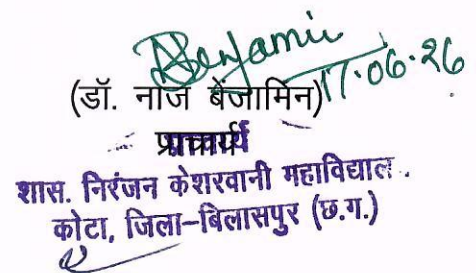 Benjamin
17.06.26
(डॉ. नाज बेंजामिन)
प्राचार्य
प्राचार्य
शास. निरंजन केशरवानी महाविद्याल.
कोटा, जिला-बिलासपुर (छ.ग.)